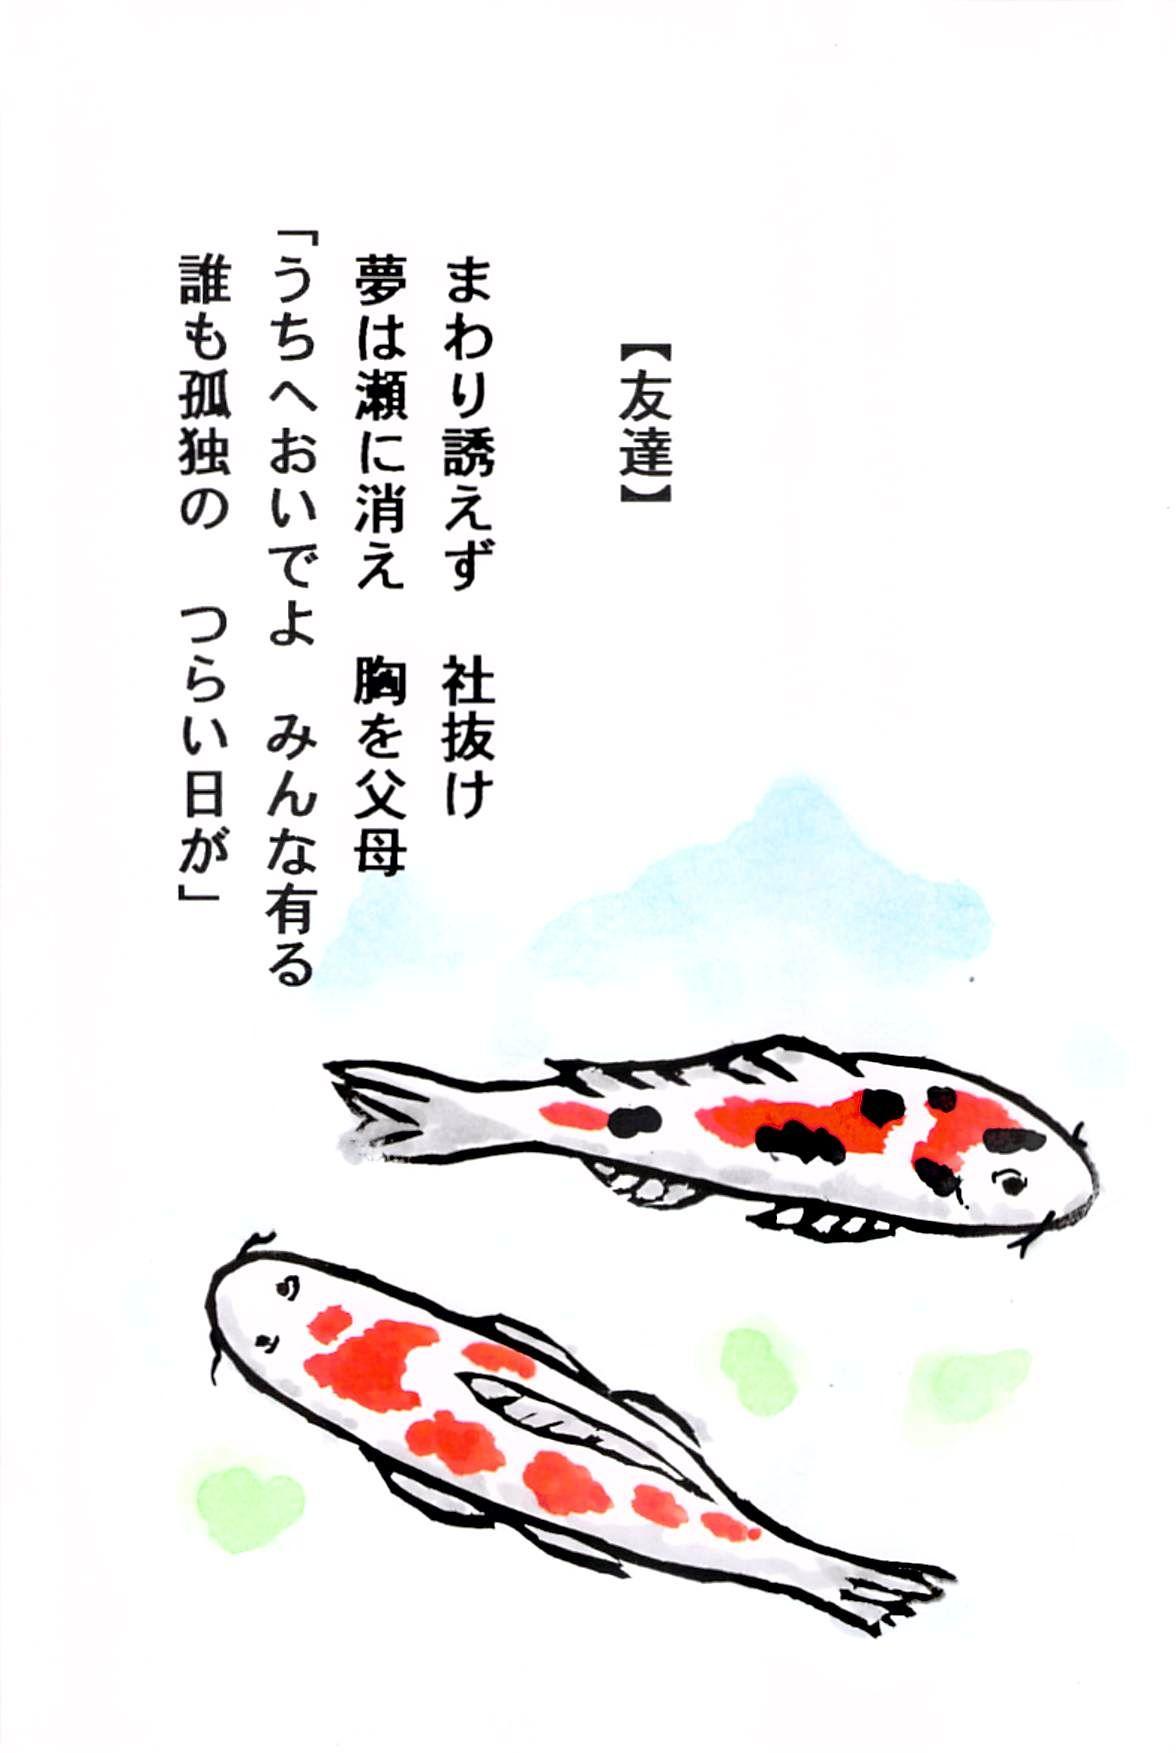 【友達】
まわり誘えず　社抜け
夢は瀬に消え　胸を父母
「うちへおいでよ　みんな有る
誰も孤独の　つらい日が」